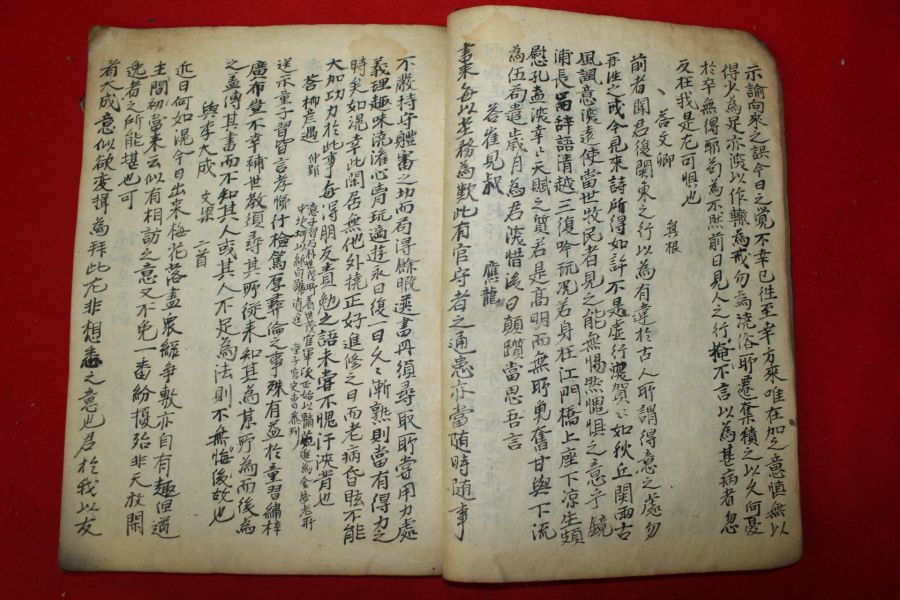 示諭向來之誤今日之覺不幸已徃至幸方來唯在加之意愼無以
得少爲足亦深以作轍爲戒勿爲流俗所遷奪積之以久何憂
於卒無得耶苟爲不然前日見人之行掩不言以爲甚病者忽
反在我是尤可懼也
答文卿 無根
前者聞君復關東之行以爲有違於古人所謂得意之處勿
再徃之戒今見來詩所得如許不是虛行讚賀如秋丘關雨古
風諷意深遠使當世牧民者見之能無惕然愧惧之意乎鏡
浦長篇辭語淸越三復吟玩況若身在江門橋上座下凉生頓
慰孔孟深幸天賦之質若是高明而無所更奮甘與下流
爲伍荀遣歲月爲君深惜後日顚躓當思吾言
答崔見叔 應龍
書來每以坐務爲歎此有官守者之通患亦當隨時隨事
不廢持守體審之功而苟得餘暇選書冊須尋取所當用力處
義理趣味澆灌心胷玩適遊永日復一日久久漸熟則當有得力之
時矣如滉幸此閑居無他外撓正好進修之日而老病昏眩不能
大加功力於此事每得朋友責勉之語未嘗不愧汗浹背也
答柳彦遇 仲郢
送示童子習皆言孝悌什檢篤厚彛倫之事殊有益於童習繡梓
廣布豈不幸補世敎須尋其所從來知其爲某所爲而後爲
之盖傳其書而不知其人或其人不足爲法則不無悔後故也
與李大成 文樑 二首
近日何如滉今日出來梅花落盡衆綠爭敷亦自有趣但道
主問初當來云似有相訪之意又不免一番紛擾殆非天放閑
逸者之所能堪也可
眉大成意似欲變揮爲拜此尤非想悉之意也君於我以友